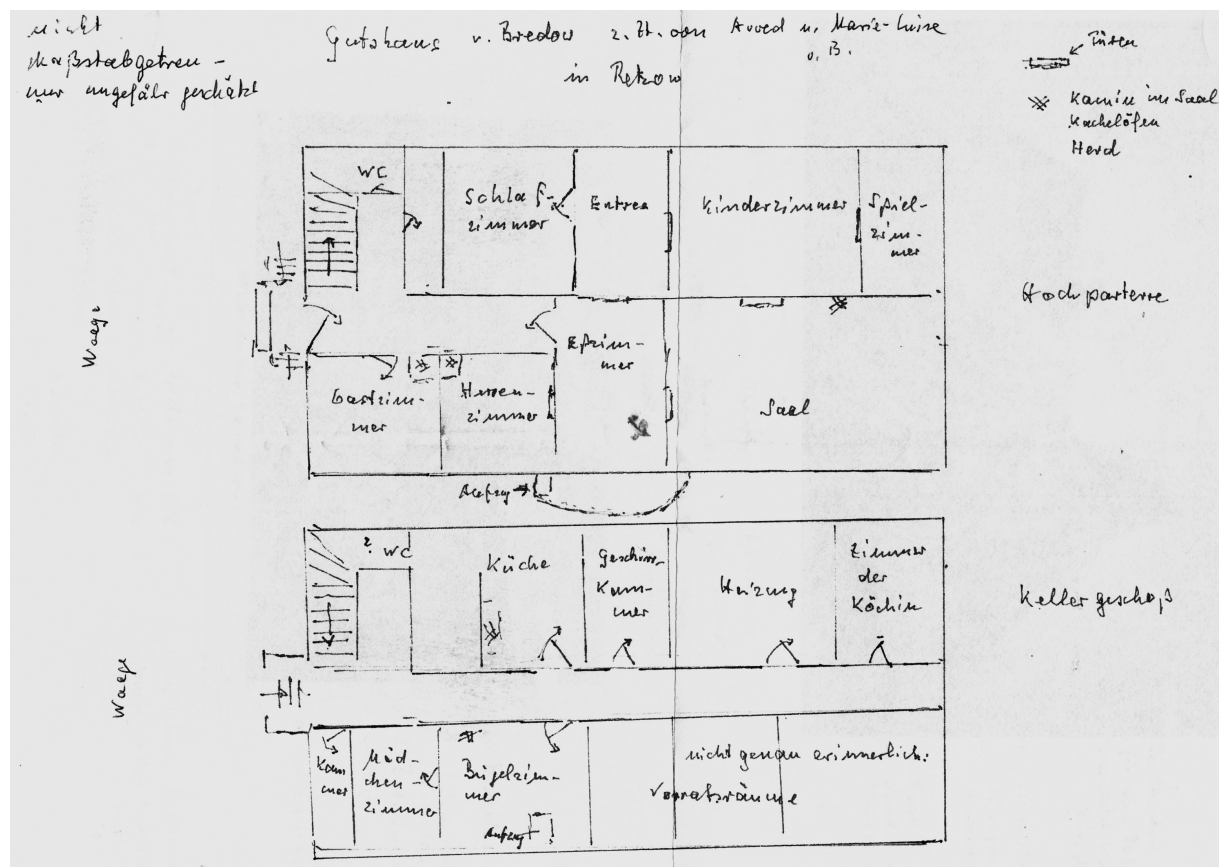 nicht
maßstabgetreu -
nur ungefähr geschätzt
Gutshaus v. Bredow z. Zt. von Arved u. Marie-Luise
v. B.
in Retzow
Türen
Kamin im Saal
Kachelöfen
Herd
WC
Schlaf-
zimmer
Entree
Kinderzimmer
Spiel-
zim-
mer
Hochparterre
Waage
Eßzim-
mer
Gastzim-
mer
Herren-
zimmer
Saal
Aufzug
? WC
Küche
Geschirr-
Kam-
mer
Heizung
Zimmer
der
Köchin
Kellergeschoß
Waage
Kam-
mer
Mäd-
chen-
zimmer
Bügelzim-
mer
Aufzug
nicht genau erinnerlich:
Vorratsräume